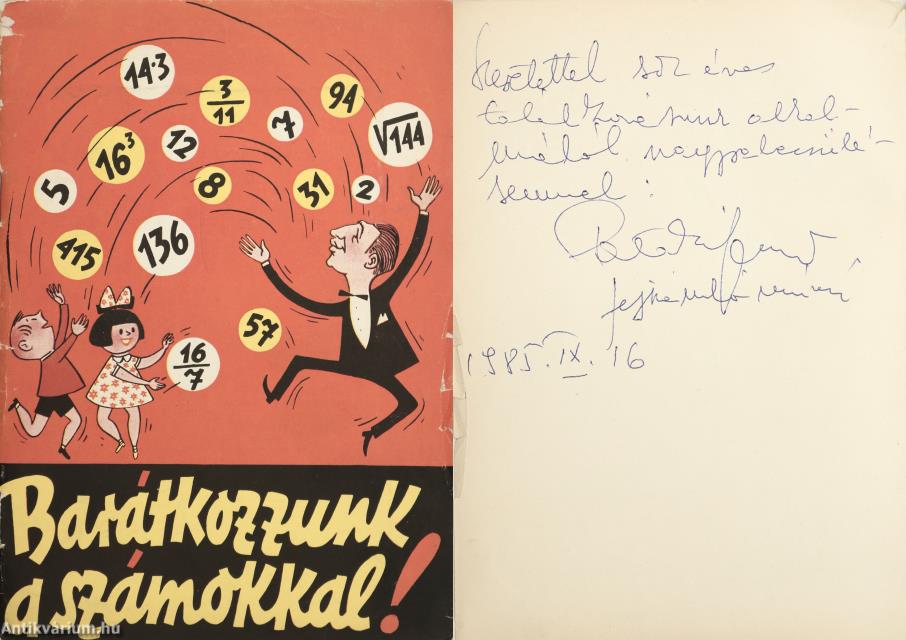 14·3
3/11
94
7
√144
16³
12
5
8
31
2
415
136
57
16/7
Barátkozzunk
a számokkal!
Szeretettel sok éves
találkozásunk alkal-
mából nagyrabecsülé-
semmel:
Pataki Ferenc
fejszámolóművész
1985. IX. 16
Antikvárium.hu